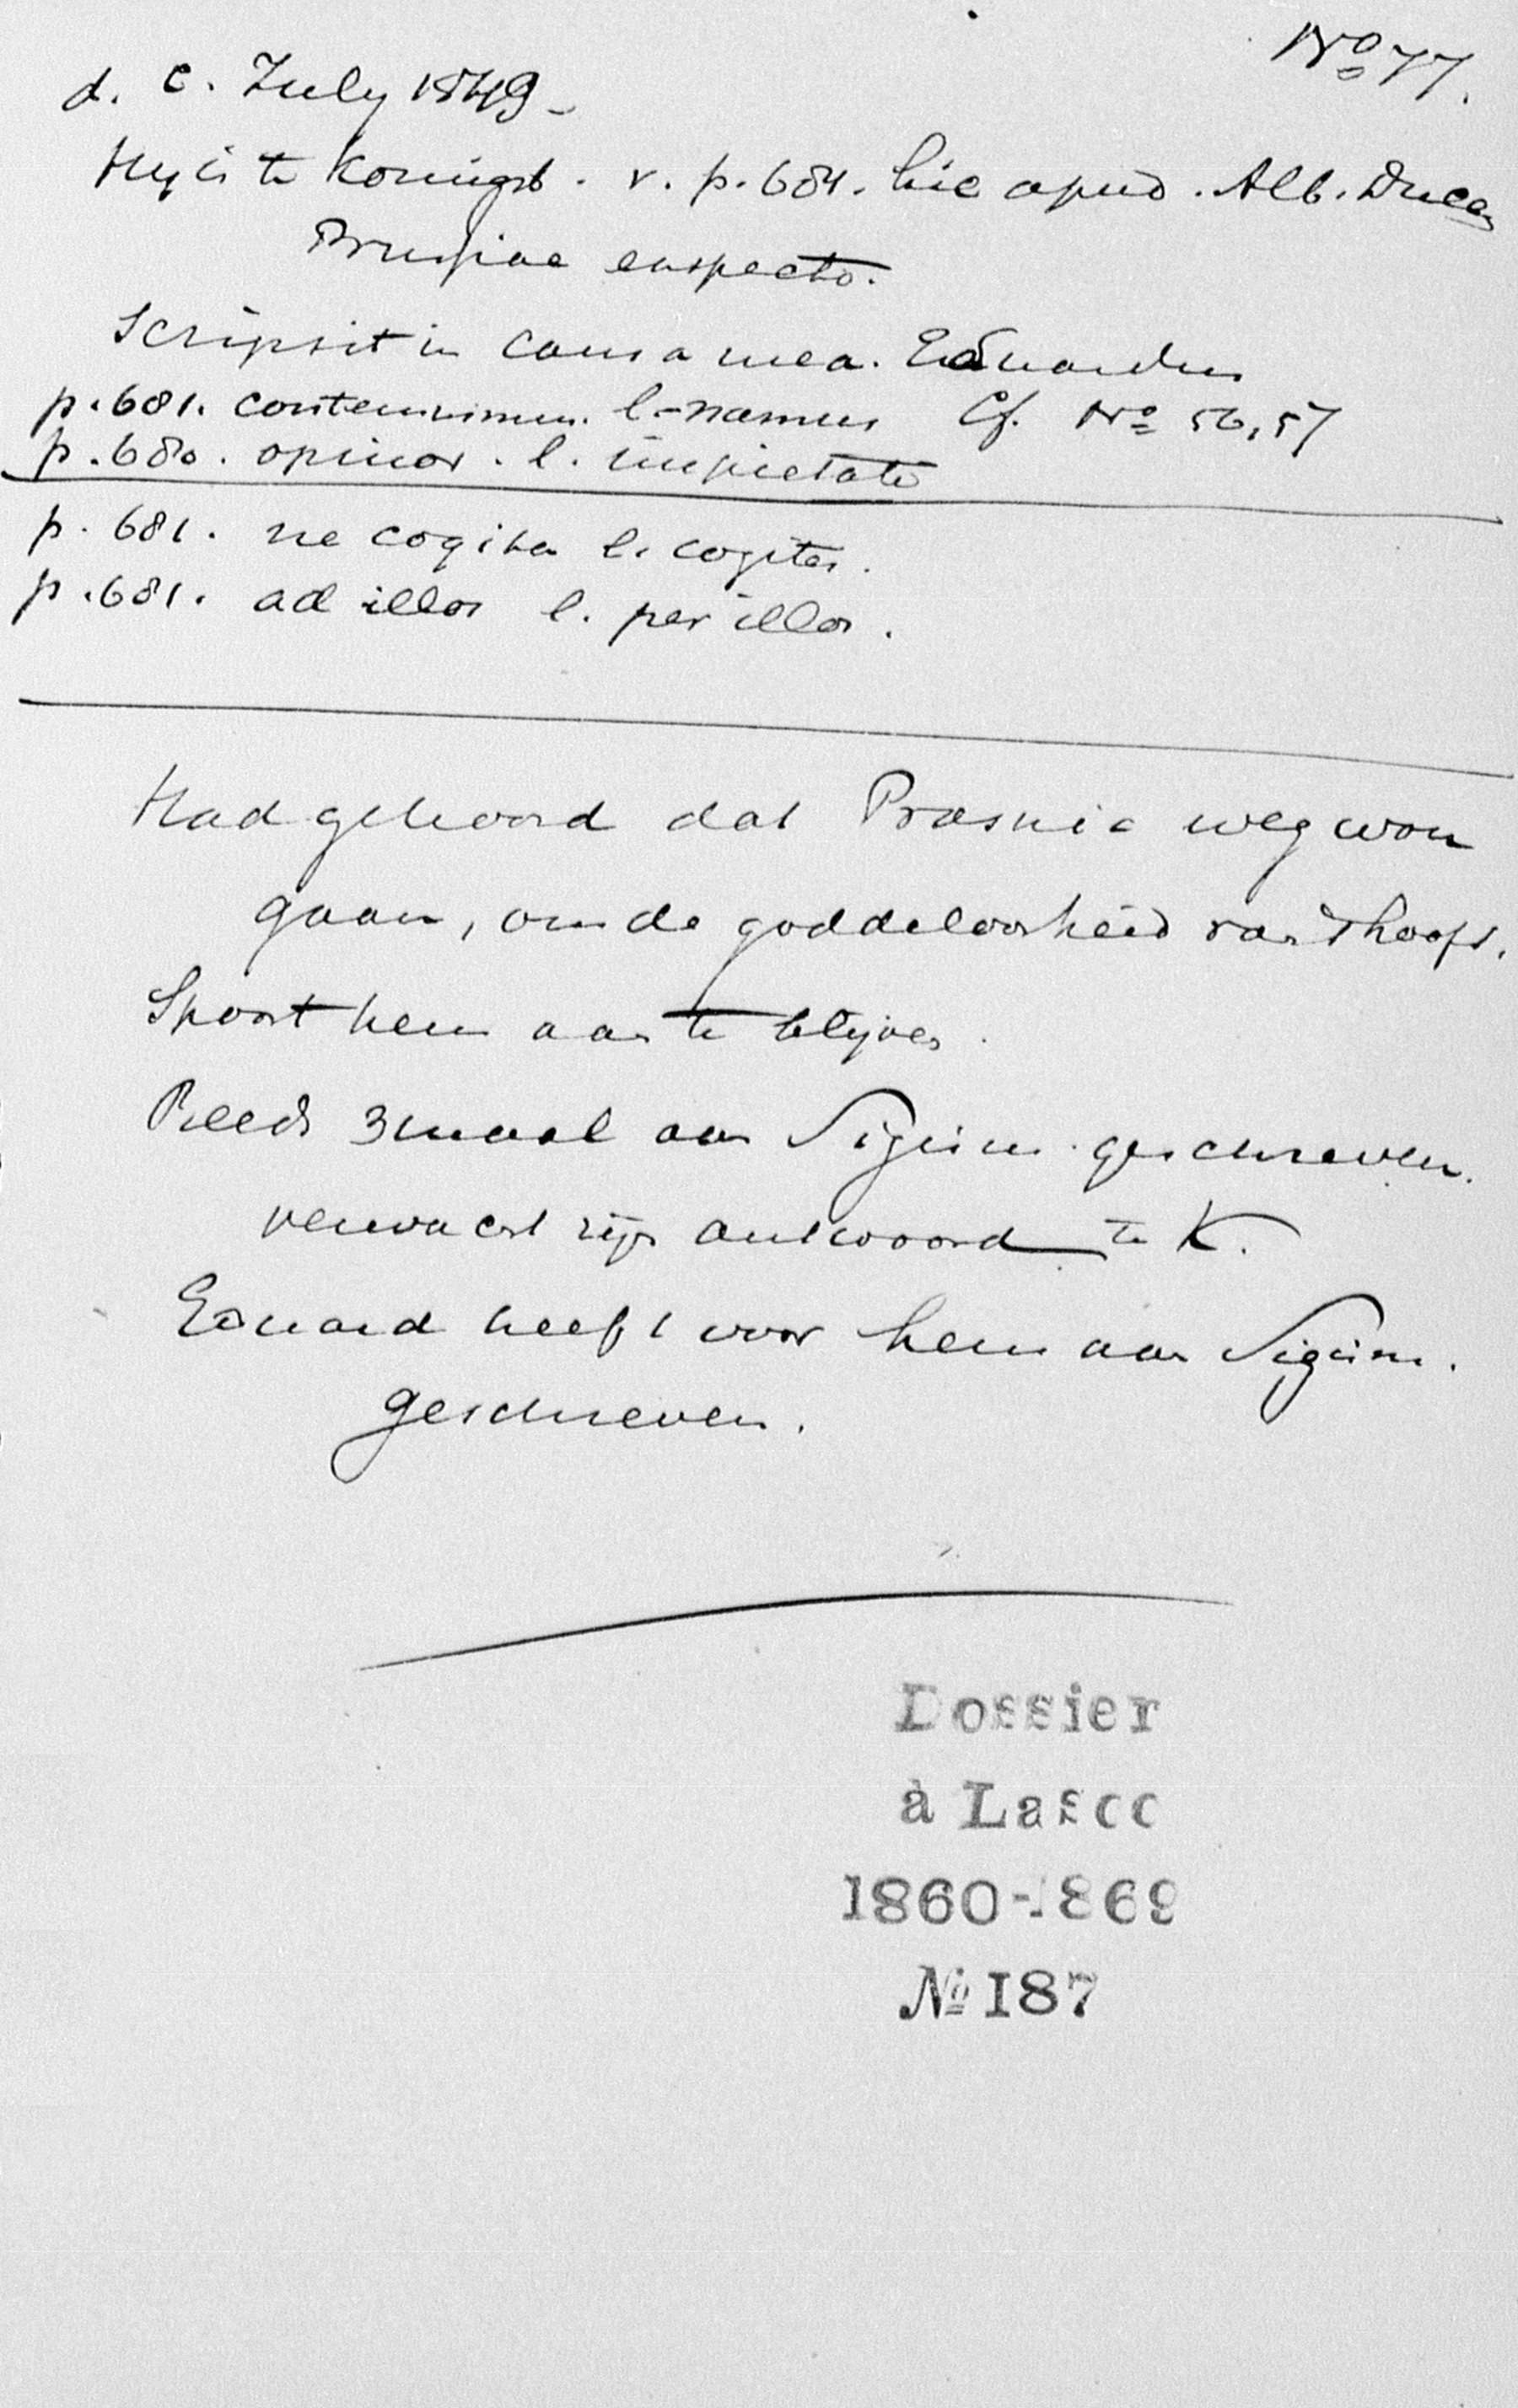 No 77.
d. C. July 1549 -
Hy is te Koningsb. v. p. 684. hic apud. Alb. Ducem
Prussiae exspecto.
Scripsit in causa mea. Eduardus
p. 681. contemnimus. l. -namus Cf. No 56, 57
p. 680. opinor. l. impietate
p. 681. ne cogita l. cogites.
p. 681. ad illos l. per illos.
Had gehoord dat Prasnic weg wou
gaan, om de goddeloosheid van 't hoofd.
Spoort hem aan te blijven.
Reeds 3maal aan Sigism. geschreven.
verwacht zijn antwoord te K.
Eduard heeft voor hem aan Sigism.
geschreven.
Dossier
à Lasco
1860-1869
No 187